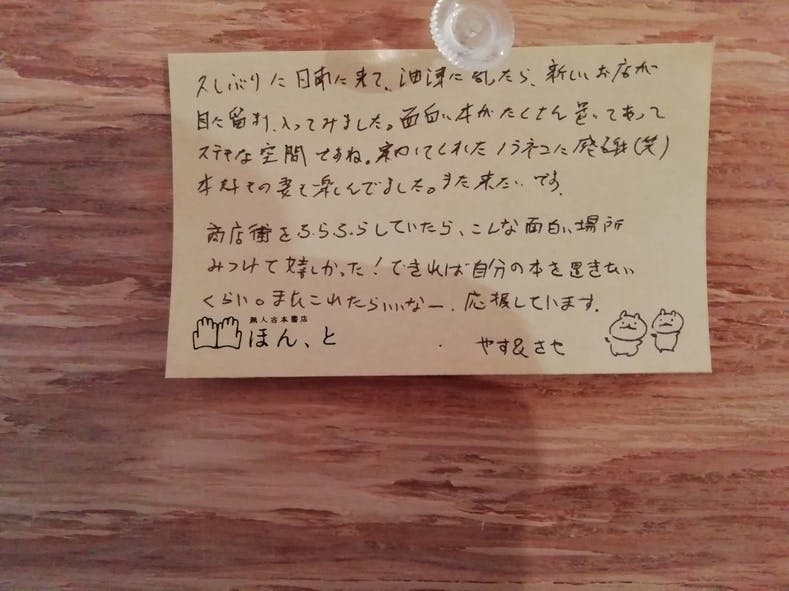 久しぶりに日南に来て、油津に したら、新しいお店が
目に留まり、入ってみました。面白い本がたくさん置いてあって
ステキな空間ですね。 てくれたノラネコに (笑)
本好きの妻と楽しんでました。また来たいです.
商店街をふらふらしていたら、こんな面白い場所
みつけて嬉しかった！できれば自分の本を置きたい
くらい。またこれたらいいなー. 応援しています.
無人古本書店
ほん、と
やす&